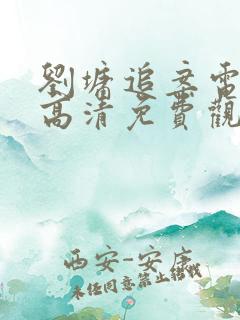 劉墉追案電
高清免費觀
西安-安康
未经同意禁止转载